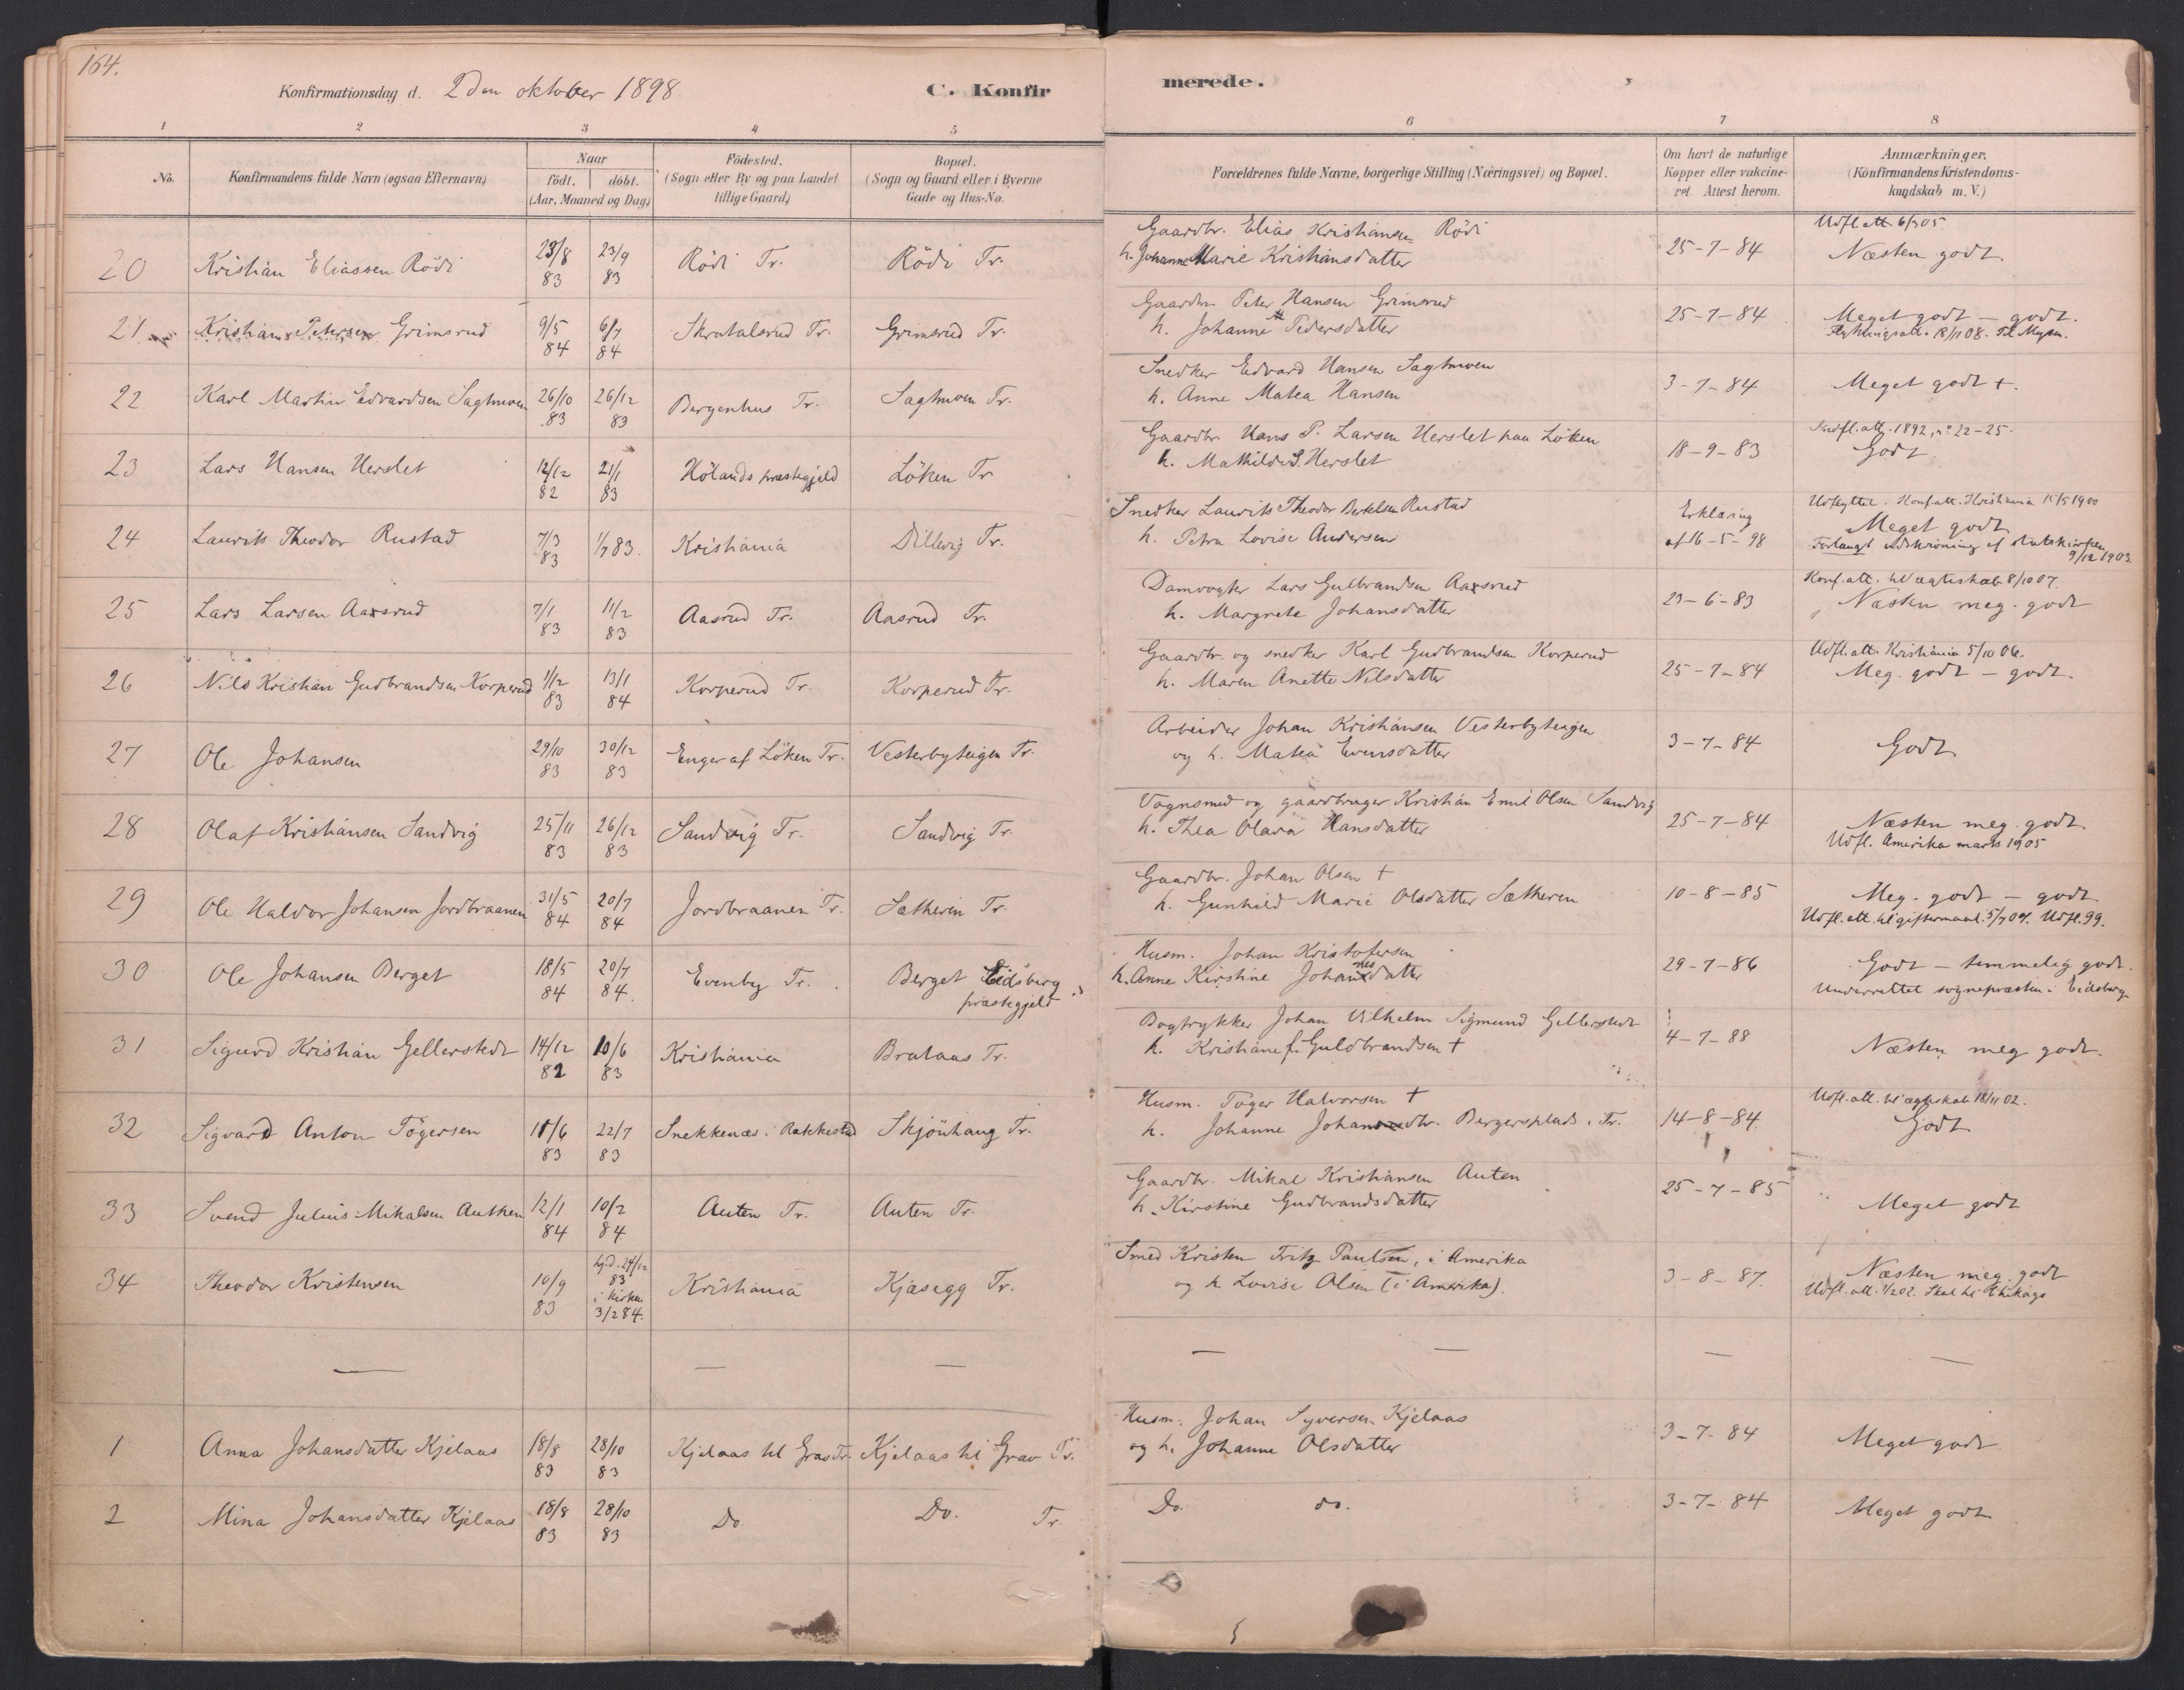 164.
Konfirmationsdag d. 2den oktober 1898.
C. Konfirmerede.
1 2 3 4 5 6 7 8
No. Konfirmandens fulde Navn (ogsaa Efternavn) Naar födt. döbt. (Aar, Maaned og Dag) Födested. (Sogn eller By og paa Landet tillige Gaard) Bopæl. (Sogn og Gaard eller i Byerne Gade og Hus-No. Forældrenes fulde Navne, borgerlige Stilling (Næringsvei) og Bopæl. Om havt de naturlige Kopper eller vakcineret. Attest herom. Anmærkninger. (Konfirmandens Kristendomskundskab m. V.)
20 Kristian Eliassen Rödi 23/8 83 23/9 83 Rödi Tr. Rödi Tr. Gaardbr. Elias Kristiansen Rödi 25-7-84 Udfl att 6/3 05.
h. Johanne Marie Kristiansdatter Næsten godt.
21 Kristian Petersen Grimsrud 9/5 84 6/7 84 Skratalsrud Tr. Grimsrud Tr. Gaardbr. Peter Hansen Grimsrud 25-7-84 Meget godt – godt.
h. Johanne Pedersdatter Flytningsatt. 18/11 08. Til Mysen.
22 Karl Martin Edvardsen Sagtmoen 26/10 83 26/12 83 Bergenhus Tr. Sagtmoen Tr. Snedker Edvard Hansen Sagtmoen 3-7-84 Meget godt +.
h. Anne Matea Hansen
23 Lars Hansen Herslet 12/12 82 21/1 83 Hölands præstegjeld Löken Tr. Gaardbr. Hans P. Larsen Herslet paa Löken 18-9-83 Indfl. att. 1892, no 22-25.
h. Mathilde S. Herslet Godt
24 Laurits Theodor Rustad 7/3 83 1/7 83. Kristiania Dillevig Tr. Snedker Laurits Theodor Bertelsen Rustad Erklæring Udflyttet. Konf.att. Kristiania 15/5 1900
h. Petra Lovise Andersen af 16-5-98 Meget godt
Forlangt udskrivning af statskirken 9/12 1903.
25 Lars Larsen Aasrud 7/1 83 11/2 83 Aasrud Tr. Aasrud Tr. Damvogter Lars Gulbrandsen Aasrud 23-6-83 Konf.att. til ægteskab 8/10 07.
h. Margrete Johansdatter Næsten meg. godt
26 Nils Kristian Gudbrandsen Korperud 1/12 83 13/1 84 Korperud Tr. Korperud Tr. Gaardbr. og snedker Karl Gudbrandsen Korperud 25-7-84 Udfl. att. Kristiania 5/10 06.
h. Maren Anette Nilsdatter Meg. godt – godt.
27 Ole Johansen 29/10 83 30/12 83 Enger af Löken Tr. Vesterbyteigen Tr. Arbeider Johan Kristiansen Vesterbyteigen 3-7-84 Godt
og h. Matea Evensdatter
28 Olaf Kristiansen Sandvig 25/11 83 26/12 83 Sandvig Tr. Sandvig Tr. Vognsmed og gaardbruger Kristian Emil Olsen Sandvig 25-7-84 Næsten meg. godt
h. Thea Olava Hansdatter Udfl. Amerika marts 1905
29 Ole Haldor Johansen Jordbraanen 31/5 84 20/7 84 Jordbraanen Tr. Sætheren Tr. Gaardbr. Johan Olsen † 10-8-85 Meg. godt – godt
h. Gunhild Marie Olsdatter Sætheren Udfl. att. til giftermaal. 5/7 04. Udfl. 99.
30 Ole Johansen Berget 18/5 84 20/7 84. Evenby Tr. Berget Eidsberg præstegjeld Husm. Johan Kristofersen 29-7-86 Godt – temmelig godt.
h. Anne Kirstine Johannesdatter Underrettet sognepresten i Eidsberg
31 Sigurd Kristian Gellerstedt 14/12 82 10/6 83 Kristiania Brataas Tr. Bogtrykker Johan Vilhelm Sigmund Gellerstedt 4-7-88 Næsten meg godt.
h. Kristiane f. Guldbrandsen †
32 Sigvard Anton Tögersen 11/6 83 22/7 83 Snekkenæs i Rakkestad Skjönhaug Tr. Husm. Töger Halvorsen † 14-8-84. Udfl. att. til ægtskab 18/11 02.
h. Johanne Johansdtr. Bergersplads i Tr. Godt
33 Svend Julius Mikalsen Authen 12/1 84 10/2 84 Auten Tr. Auten Tr. Gaardbr. Mikal Kristiansen Auten 25-7-85 Meget godt
h. Kirstine Gudbrandsdatter
34 Theodor Kristensen 10/9 83 hj.d. 24/12 83 i kirken 3/2 84. Kristiania Kjæsegg Tr. Smed Kristen Fritz Paulsen, i Amerika 3-8-87. Næsten meg. godt
og h Lovise Olsen (i Amerika). Udfl. att. 1/2 02. Skal til Chikago
— — — — — — —
1 Anna Johansdatter Kjelaas 18/8 83 28/10 83 Kjelaas til Grav Tr. Kjelaas til Grav Tr. Husm. Johan Syversen Kjelaas 3-7-84 Meget godt
og h. Johanne Olsdatter
2 Mina Johansdatter Kjelaas 18/8 83 28/10 83 Do Do. Tr. Do. do. 3-7-84 Meget godt